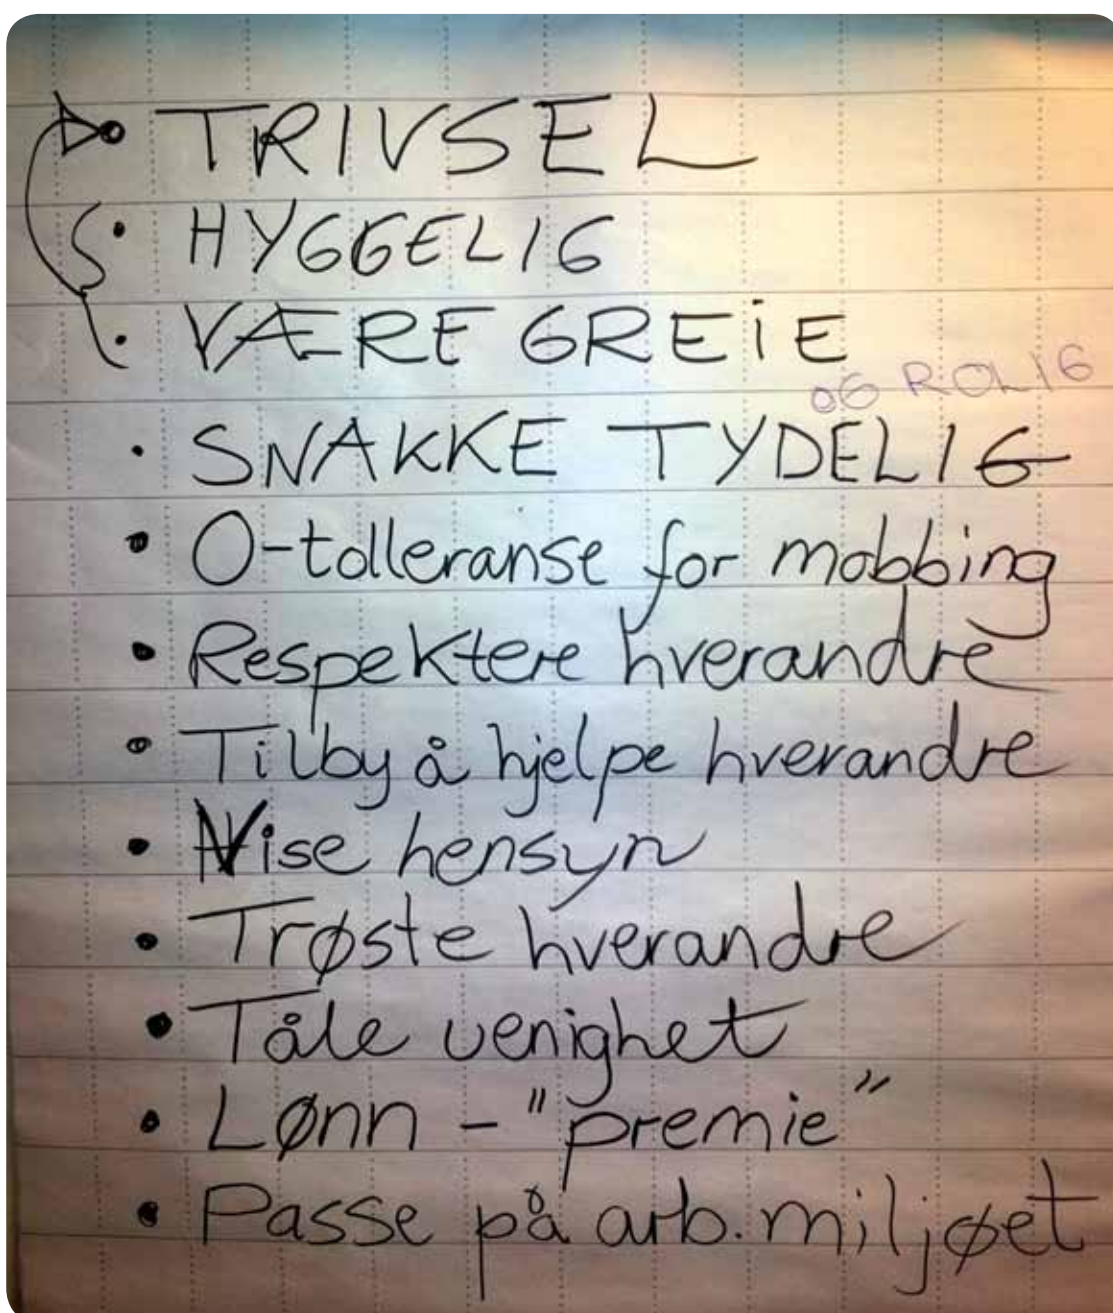 • TRIVSEL
• HYGGELIG
• VÆRE GREIE
OG ROLIG
• SNAKKE TYDELIG
• 0-tolleranse for mobbing
• Respektere hverandre
• Tilby å hjelpe hverandre
• Vise hensyn
• Trøste hverandre
• Tåle uenighet
• Lønn - "premie"
• Passe på arb.miljøet